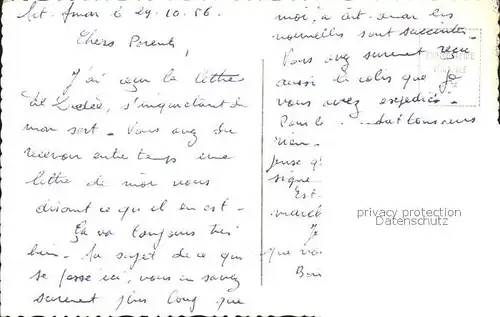 le 29.10.56.
Chers Parents,
J'ai reçu la lettre
de s'inquiétant de
mon sort - Vous avez dû
recevoir entre temps une
lettre de moi vous
disant ce qu'il en est -
Ça va toujours très
bien - Au sujet de ce qui
se passe ici, vous en savez
surement plus long que
moi, à cet les
nouvelles sont succintes.
Vous avez surement reçu
aussi le colis que je
vous avez expédié -
Pour le
rien -
signe
Est-
Je
que vo
Bon
privacy protection
Datenschutz